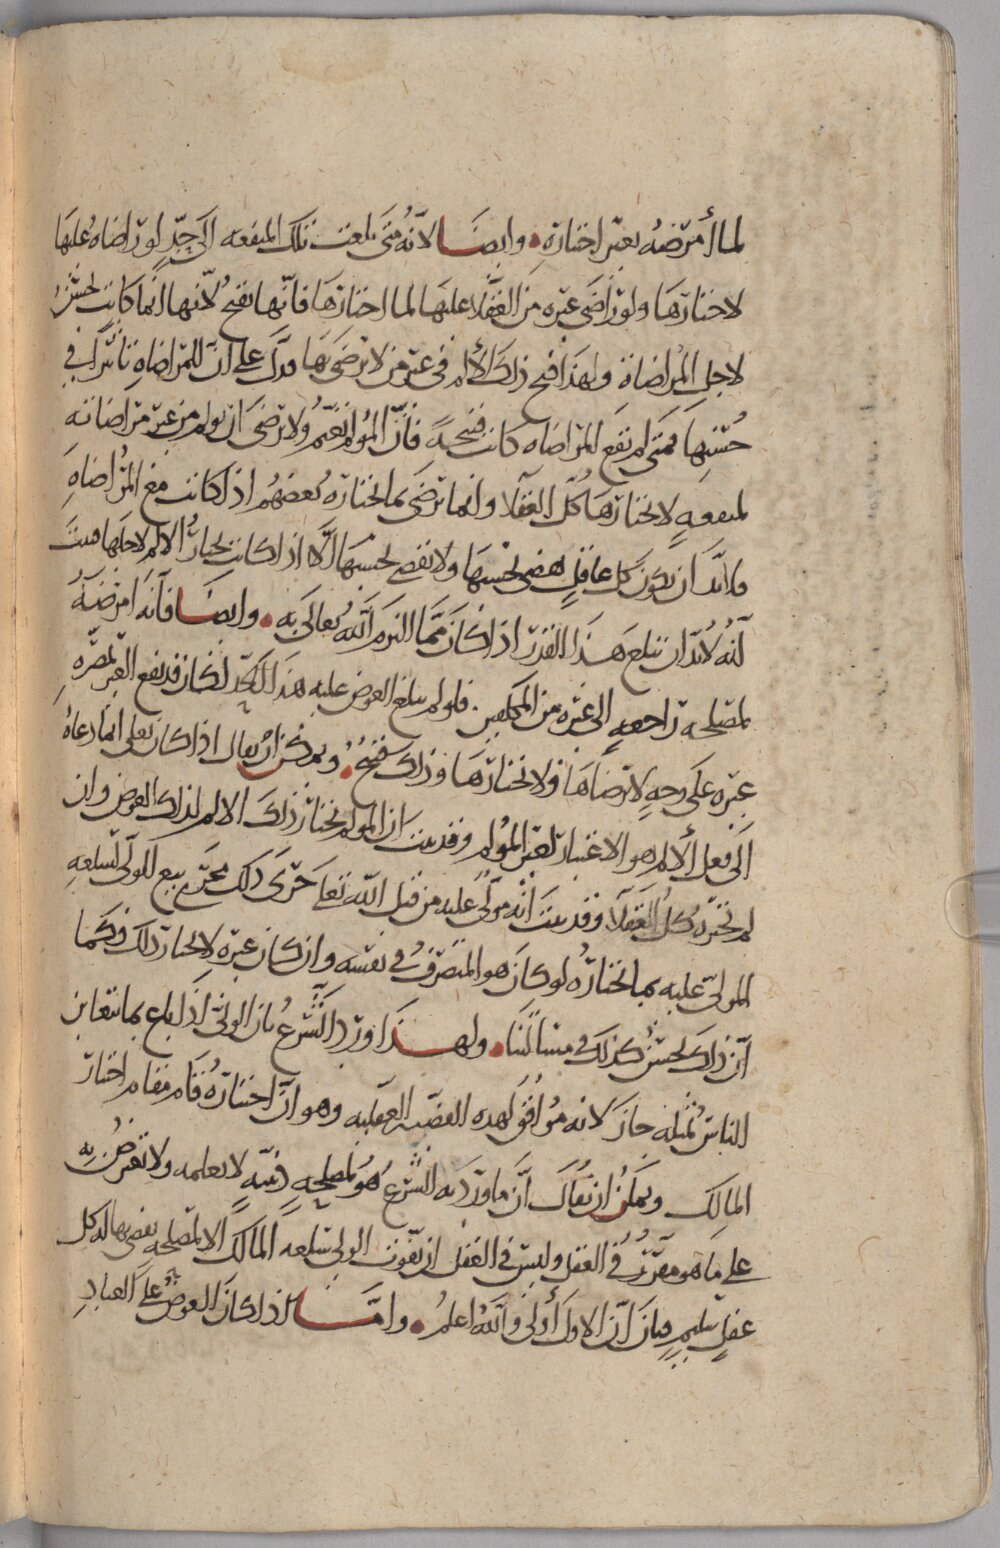 لما أمرضه بغير اختياره • وايضا لانه متى بلغت تلك المنفعه الى حدٍّ لو راضاه عليها
لاختارها ولو راضى غيره من العقلا عليها لما اختارها فانها تقبح لانها انما كانت تحسن
لاجل المراضاة ولهذا قبح ذلك الألم في غير من لا يرضى بها فدل على ان للمراضاه تاثيراً في
حسنها فمتى لم تقع المراضاه كانت قبيحةً فانّ المؤلم يغتم ولا يرضى ان يولم من غير مراضاته
لمنفعهٍ لا يختارها كل العقلا وانما يرضى بما يختاره بعضهم اذا كانت مع المراضاهِ
فلابد ان يكون كل عاقلٍ يقضي بحسنها ولا يقضي بحسنها الا اذا كانت يختار الالم لاجلها فثبت
انه لابد ان تبلغ هذا القدر اذا كان مما التزم الله تعالى به • وايضا فانه امرضهُ
لمصلحه راجعهٍ الى غيره من المكلفين. فلو لم يبلغ العوض عليه هذا الحدّ لكان قد نفع الغير بمضره
غيره على وجهٍ لا يرضاها ولا يختارها وذلك قبيحٌ • ويمكن ان يقال اذا كان تعالى انما دعاهُ
الى فعل الألم هو الاعتبار لغير المؤلم وقد ثبت ان المولم يختار ذلك الالم لذلك العوض وان
لم يختره كل العقلا وقد ثبت انه مولّى عليه من قبل الله تعالى جرى ذلك مجرى بيع الولّى لسلعهِ
المولى عليه بما يختارُه لو كان هو المتصرف في نفسه وان كان غيره لا يختار ذلك وكما
انّ ذلك يحسن كذلك في مسالتنا • ولهذا ورد الشرع بان الولى اذا باع بما يتغابن
الناس بمثله جاز لانه موافق لهذه القضيه العقليه وهو ان اختيارهُ قام مقام اختيار
المالك ويمكن ان يقال انّ ما ورد به الشرع هو لمصلحهٍ دينيّهٍ لا نعلمه ولا نعرض به
على ما هو مقرّر في العقل وليس في العقل ان يفوت الولى سلعه المالك الا لمصلحه يقضى بها له كل
عقلٍ سليمٍ فبان انّ الاول أولى والله اعلم • وامّا اذا كان العوض على العبادِ